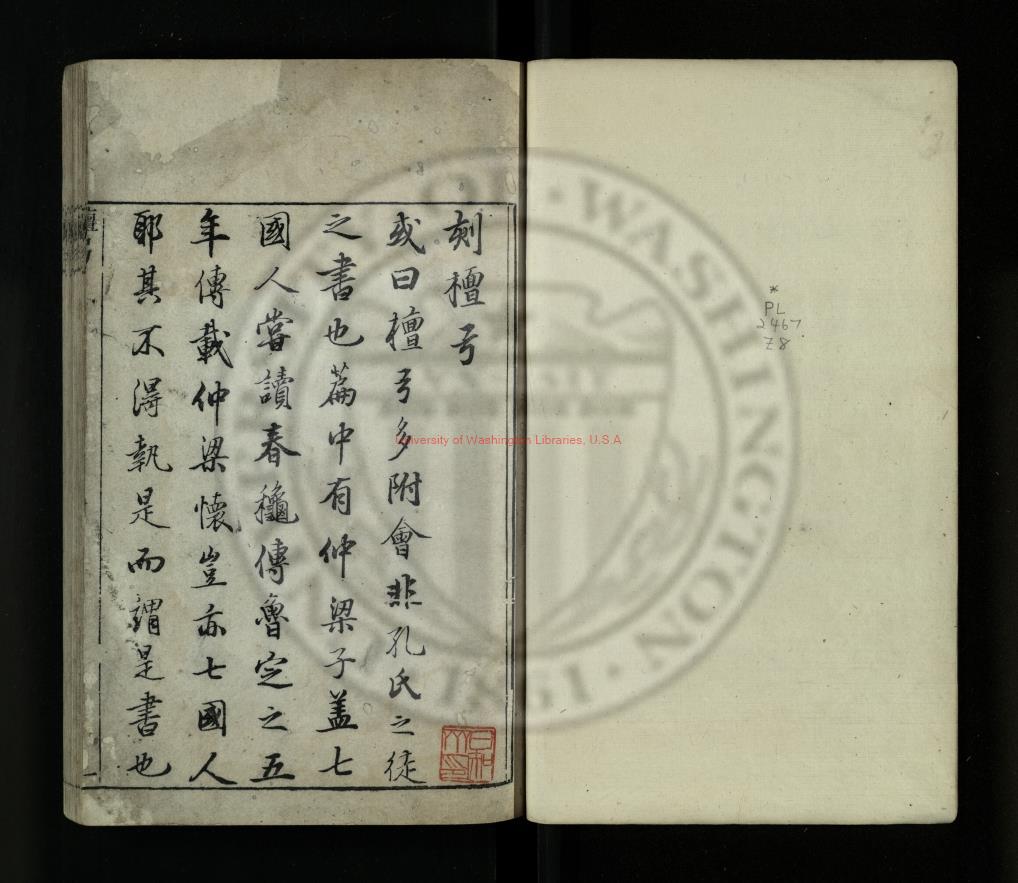 刻檀弓
或曰檀弓多附會非孔氏之徒
之書也篇中有仲梁子盖七
國人嘗讀春龝傳魯定之五
年傳載仲梁懷豈亦七國人
耶其不得執是而謂是書也
檀弓
一
*
PL
2467
Z8
University of Washington Libraries, U.S.A